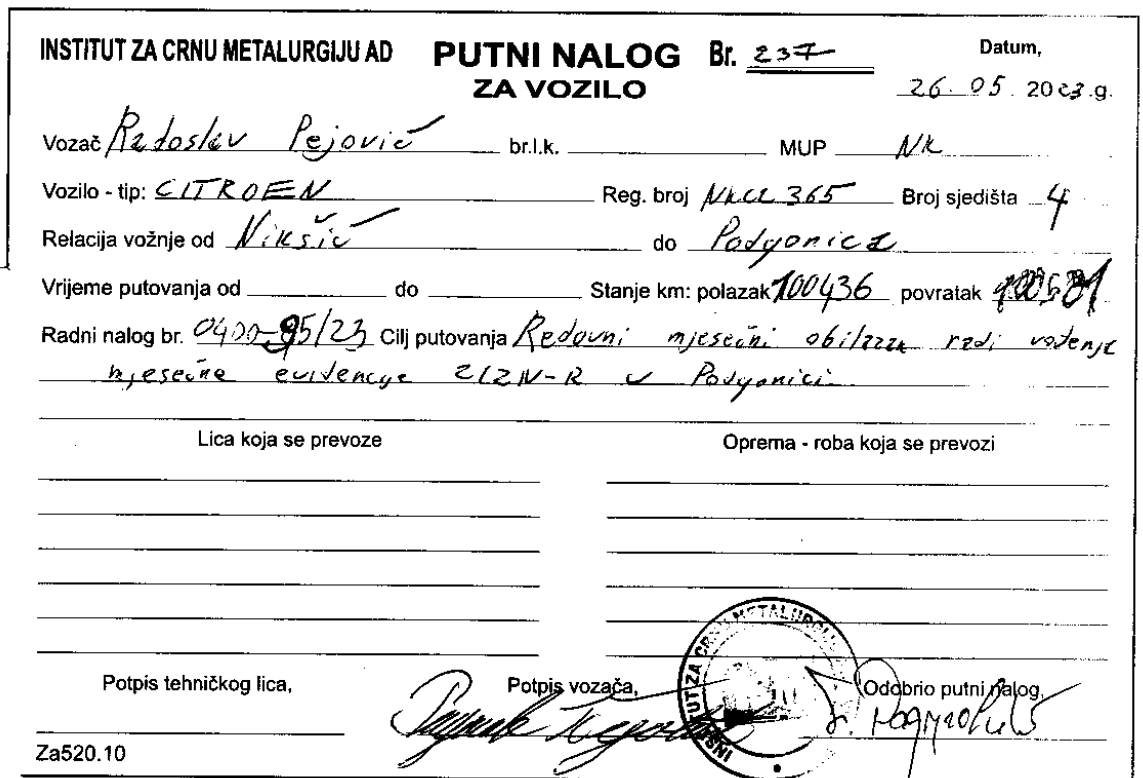 INSTITUT ZA CRNU METALURGIJU AD PUTNI NALOG Br. 237 Datum,
ZA VOZILO 26. 05. 2023.g.
Vozač Radoslav Pejović br.l.k. MUP NK
Vozilo - tip: CITROEN Reg. broj NKCL 365 Broj sjedišta 4
Relacija vožnje od Nikšić do Podgorica
Vrijeme putovanja od do Stanje km: polazak 100436 povratak
Radni nalog br. 0400-95/23 Cilj putovanja Redovni mjesečni obilazak radi vođenje
mjesečne evidencije u Podgorici
Lica koja se prevoze Oprema - roba koja se prevozi
INSTITUT ZA CRNU METALURGIJU
Potpis tehničkog lica, Potpis vozača, Odobrio putni nalog,
Za520.10